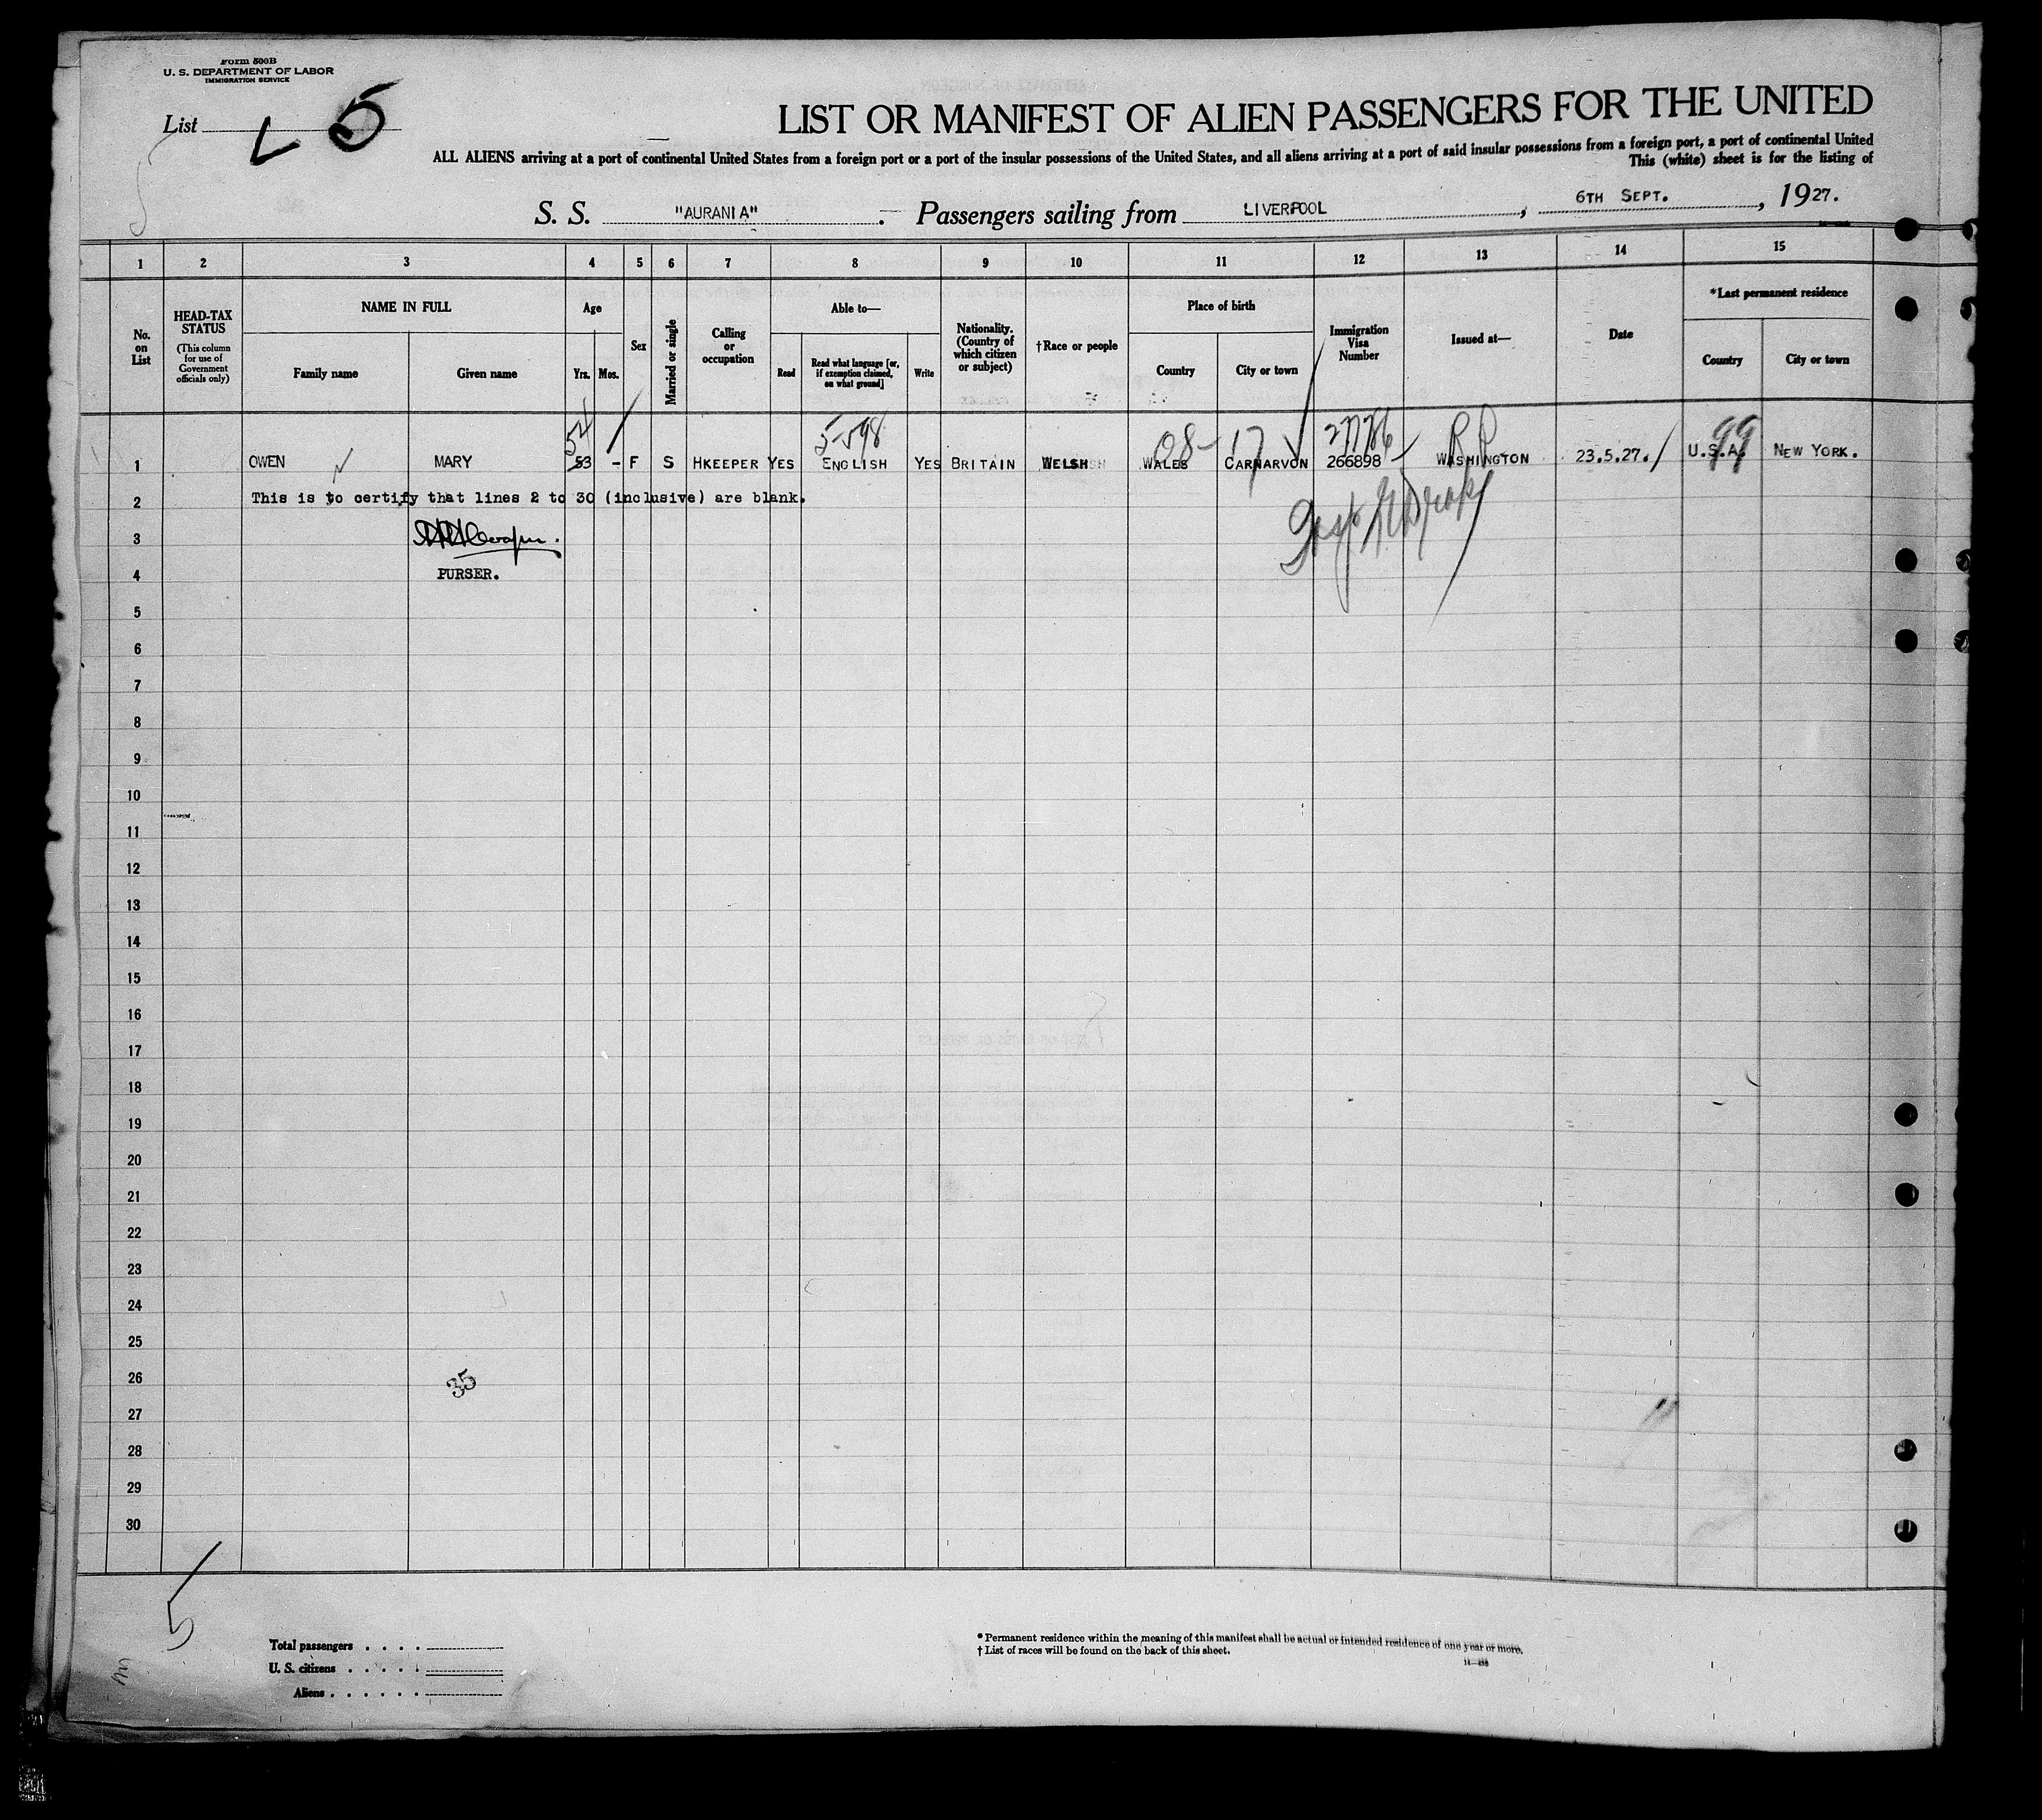 Form 500B
U. S. DEPARTMENT OF LABOR
IMMIGRATION SERVICE
List L 5
LIST OR MANIFEST OF ALIEN PASSENGERS FOR THE UNITED
ALL ALIENS arriving at a port of continental United States from a foreign port or a port of the insular possessions of the United States, and all aliens arriving at a port of said insular possessions from a foreign port, a port of continental United
This (white) sheet is for the listing of
S. S. "AURANIA" . Passengers sailing from LIVERPOOL , 6TH SEPT. , 1927.
1 2 3 4 5 6 7 8 9 10 11 12 13 14 15
No. on List
HEAD-TAX STATUS
(This column for use of Government officials only)
NAME IN FULL
Family name
Given name
Age
Yrs.
Mos.
Sex
Married or single
Calling or occupation
Able to—
Read
Read what language [or, if exemption claimed, on what ground]
Write
Nationality. (Country of which citizen or subject)
†Race or people
Place of birth
Country
City or town
Immigration Visa Number
Issued at—
Date
*Last permanent residence
Country
City or town
54 5-598 08- 17 RP 99
1 OWEN MARY 53 - F S HKEEPER YES ENGLISH YES BRITAIN WELSH WALES CARNARVON 266898 WASHINGTON 23.5.27. U.S.A. NEW YORK.
2 This is to certify that lines 2 to 30 (inclusive) are blank.
3
4 PURSER.
5
6
7
8
9
10
11
12
13
14
15
16
17
18
19
20
21
22
23
24
25
26 35
27
28
29
30
5
Total passengers
U. S. citizens
Aliens
* Permanent residence within the meaning of this manifest shall be actual or intended residence of one year or more.
† List of races will be found on the back of this sheet.